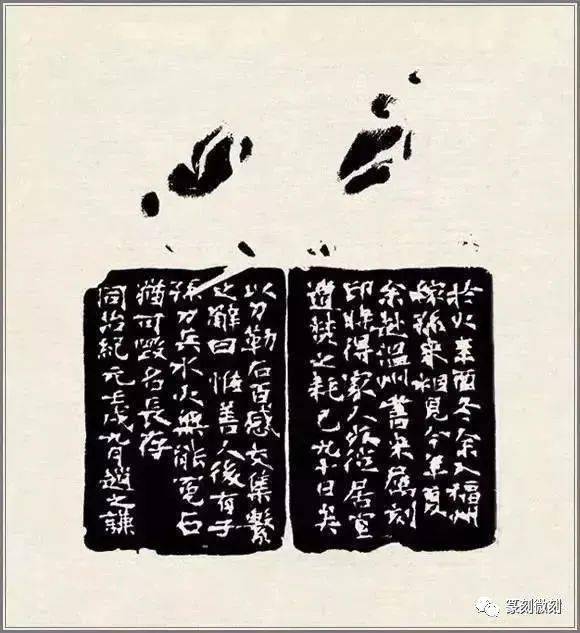 於火辛酉冬余入福州
稼孫來相見今年夏
余赴溫州應刻
印時得家人從居室
遭焚之耗已九十日矣
以刀勒石百感交集繫
之辭曰惟善人後有子
孫刀兵水火無能冤石
猶可毀者長存
同治紀元壬戌九月趙之謙
篆刻微刻